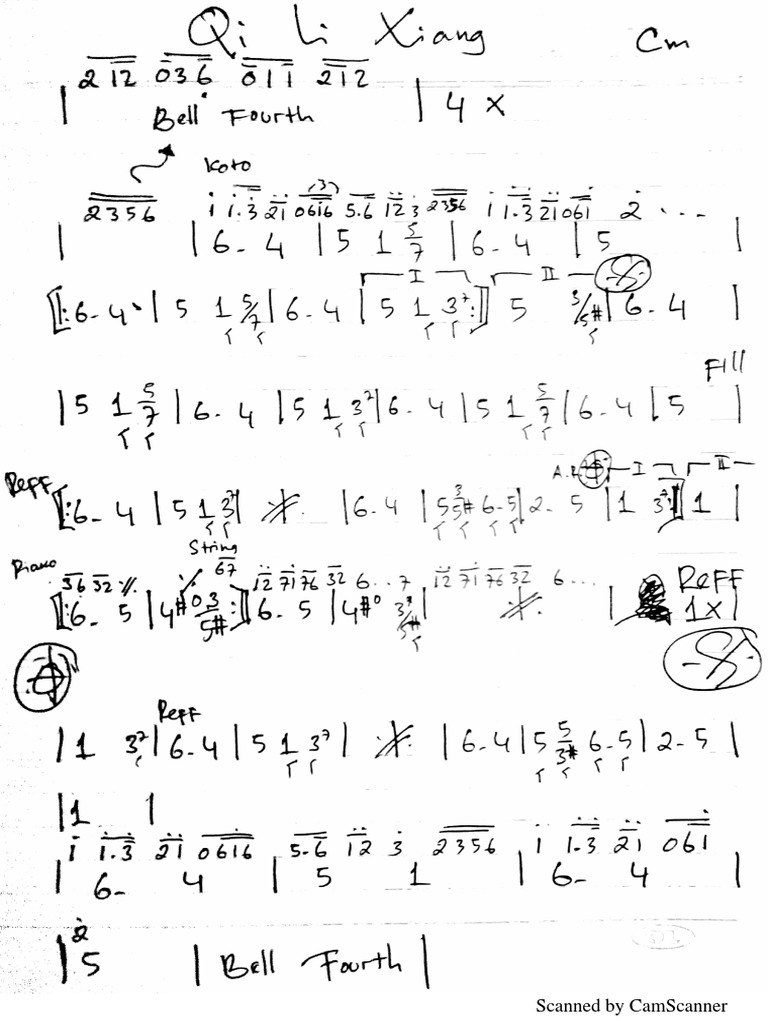 Qi Li Xiang Cm
2 12 036 011 212
| Bell Fourth | 4 x
Koto
2356 i 1.3 21 0616 5.6 12 3 2356 i 1.3 21 061 2 ...
(3)
| | 6- 4 | 5 1 5/7 | 6- 4 | 5 |
I II
[: 6- 4 | 5 1 5/7 | 6- 4 | 5 1 3⁷ :] 5 3/5# | 6- 4 |
Fill
| 5 1 5/7 | 6- 4 | 5 1 3⁷ | 6- 4 | 5 1 5/7 | 6- 4 | 5 |
I II
Reff [: 6- 4 | 5 1 3⁷ | ٪ | 6- 4 | 5 3/5# 6-5 | 2- 5 | 1 3⁷ :] 1 |
String
Piano 36 32 ٪ 67 12 71 76 32 6 . . 7 12 71 76 32 6 ... Reff
[: 6- 5 | 4#⁰ 3/5# :] 6- 5 | 4#⁰ 3⁷/5# | ٪ | 1x |
Reff
| 1 3⁷ | 6- 4 | 5 1 3⁷ | ٪ | 6-4 | 5 5/3# 6-5 | 2-5 |
| 1 |
i 1.3 21 0616 5.6 12 3 2356 i 1.3 21 061
| 6- 4 | 5 1 | 6- 4 |
2
| 5 | Bell Fourth |
Scanned by CamScanner